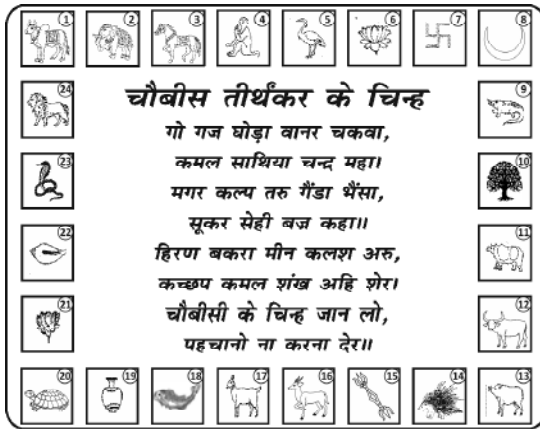 1 2 3 4 5 6 7 8
24 चौबीस तीर्थंकर के चिन्ह 9
गो गज घोड़ा वानर चकवा,
कमल साथिया चन्द्र महा।
23 मगर कल्प तरु गैंडा भैंसा, 10
सूकर सेही बज्र कहा॥
22 हिरण बकरा मीन कलश अरु, 11
कच्छप कमल शंख अहि शेर।
21 चौबीसी के चिन्ह जान लो, 12
पहचानो ना करना देर॥
20 19 18 17 16 15 14 13